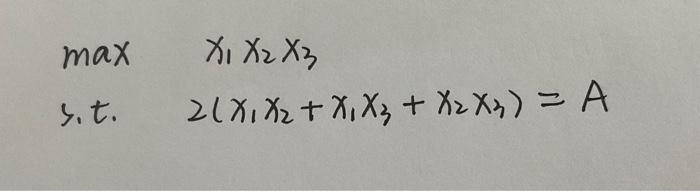 max x₁ x₂ x₃
s.t. 2(x₁x₂ + x₁x₃ + x₂x₃) = A